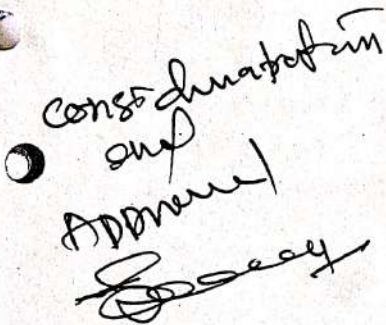 consideration
and
Approval